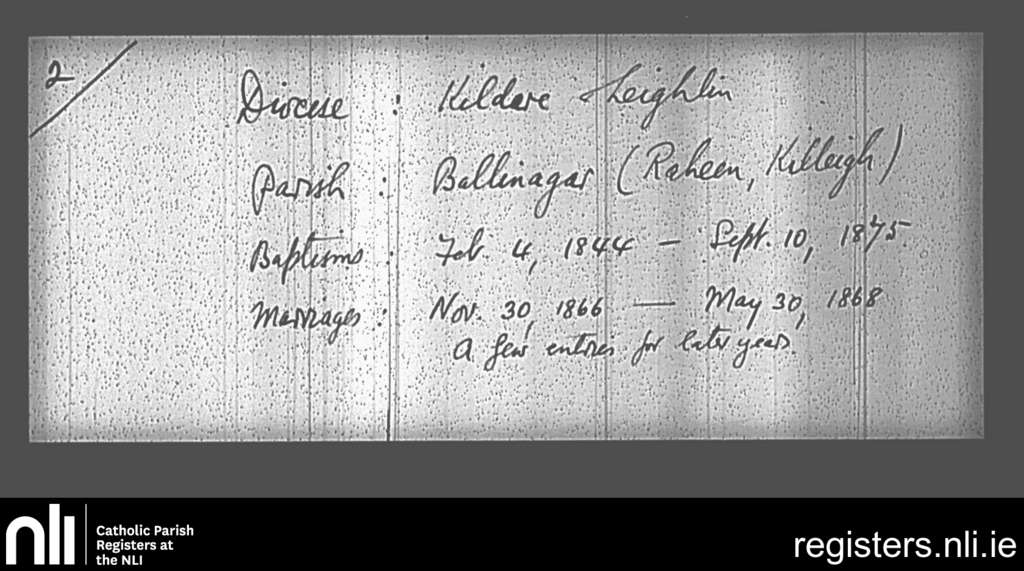 2/
Diocese : Kildare & Leighlin
Parish : Ballinagar (Raheen, Killeigh)
Baptisms : Feb. 4, 1844 — Sept. 10, 1875.
Marriages : Nov. 30, 1866 — May 30, 1868
A few entries for later years.
nli
Catholic Parish
Registers at
the NLI
registers.nli.ie